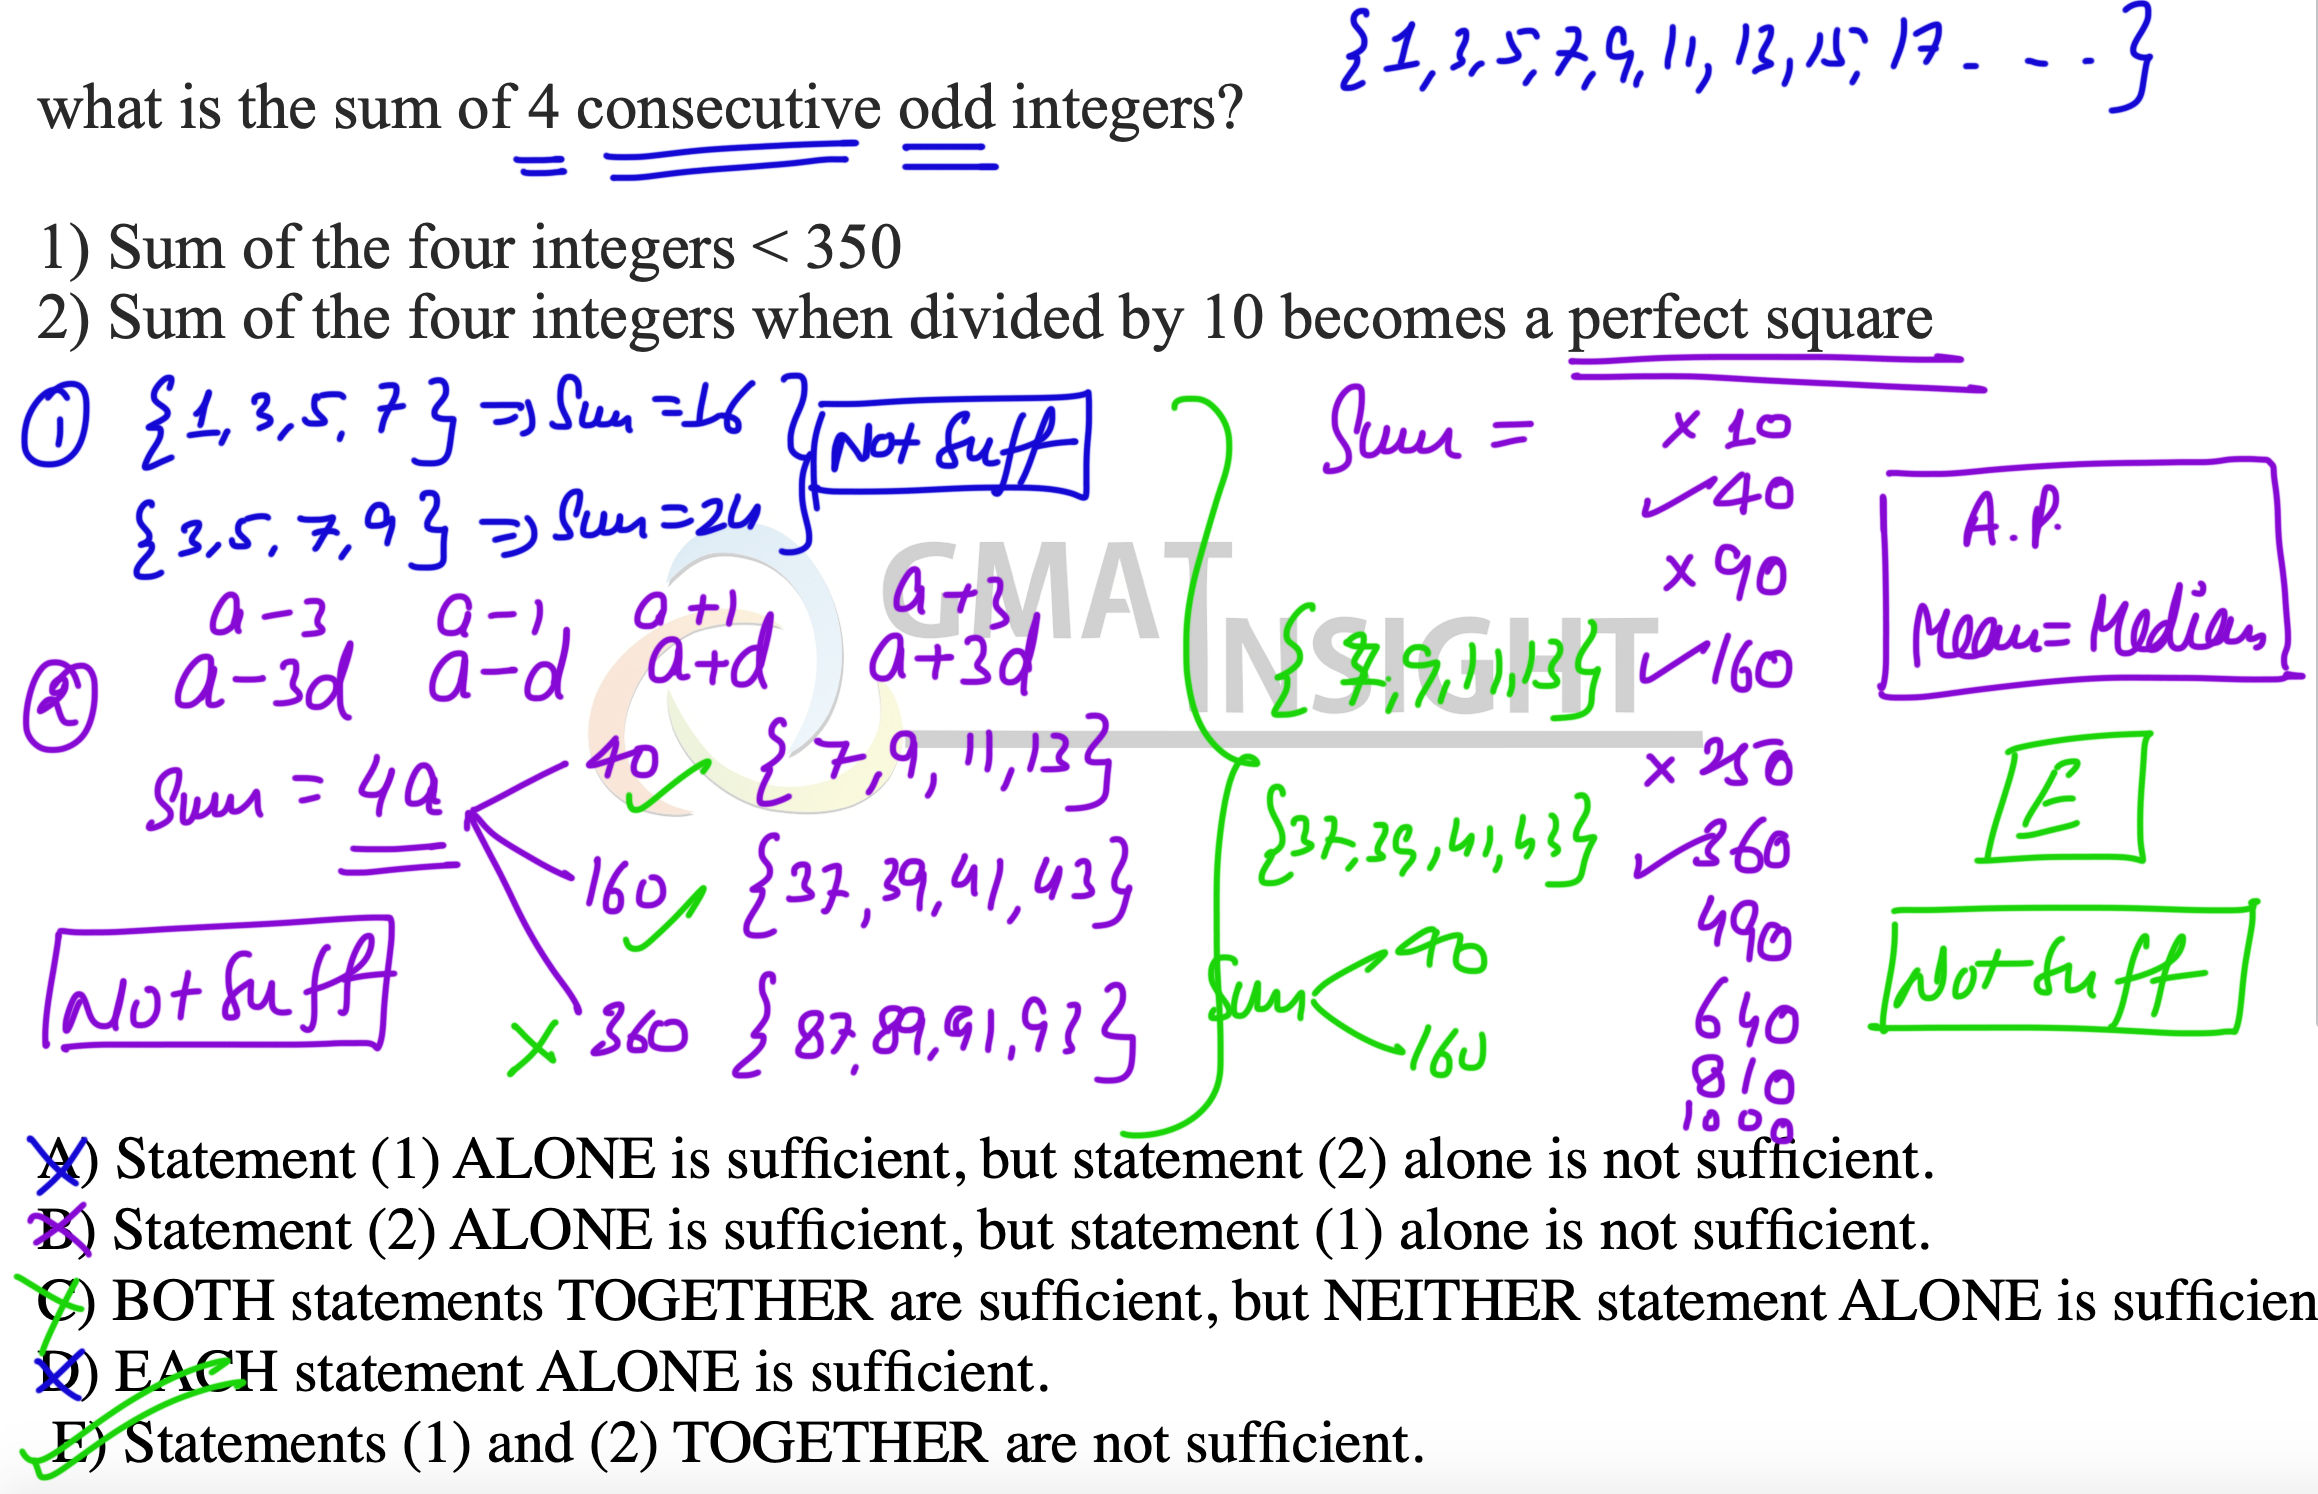 {1,3,5,7,9,11,13,15,17 - - - }
what is the sum of 4 consecutive odd integers?
1) Sum of the four integers < 350
2) Sum of the four integers when divided by 10 becomes a perfect square
① {1,3,5,7} => Sum =16 } Not Suff
{3,5,7,9} => Sum =24
a-3 a-1 a+1 a+3
② a-3d a-d a+d a+3d
Sum = 4a
40 {7,9,11,13}
160 {37,39,41,43}
360 {87,89,91,93}
Not Suff
Sum = × 10
40
× 90
160
× 250
360
490
640
810
1000
{7,9,11,13}
{37,39,41,43}
Sum 40
160
A.P.
Mean = Median
E
Not Suff
GMAT
INSIGHT
A) Statement (1) ALONE is sufficient, but statement (2) alone is not sufficient.
B) Statement (2) ALONE is sufficient, but statement (1) alone is not sufficient.
C) BOTH statements TOGETHER are sufficient, but NEITHER statement ALONE is sufficien
D) EACH statement ALONE is sufficient.
E) Statements (1) and (2) TOGETHER are not sufficient.